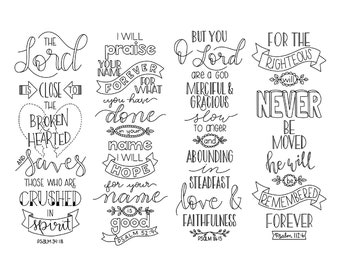 THE
Lord
IS
CLOSE
TO
THE
BROKEN
HEARTED
AND
Saves
THOSE WHO ARE
CRUSHED
IN
spirit
PSALM 34:18
I WILL
praise
YOUR
NAME
FOREVER
FOR WHAT
you have
done
in your
name
I WILL
HOPE
for your
name
is
good
PSALM 52:9
BUT YOU
O Lord
are a GOD
MERCIFUL &
GRACIOUS
slow
to anger
and
ABOUNDING
IN
STEADFAST
love &
FAITHFULNESS
PSALM 86:15
FOR THE
RIGHTEOUS
will
NEVER
BE
MOVED
he will
be
REMEMBERED
FOREVER
Psalm 112:6